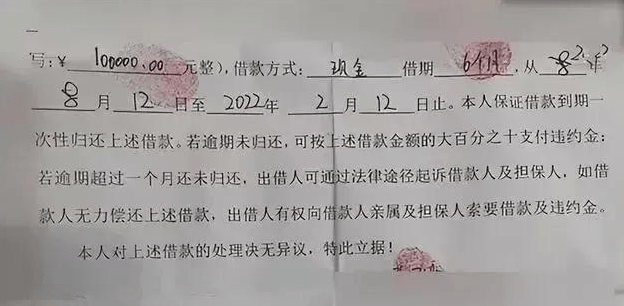 写：￥ 100000.00 元整），借款方式： 现金 借期 6个月 ，从 年
8 月 12 日至 2022 年 2 月 12 日止。本人保证借款到期一
次性归还上述借款。若逾期未归还，可按上述借款金额的大百分之十支付违约金；
若逾期超过一个月还未归还，出借人可通过法律途径起诉借款人及担保人，如借
款人无力偿还上述借款，出借人有权向借款人亲属及担保人索要借款及违约金。
本人对上述借款的处理决无异议，特此立据！